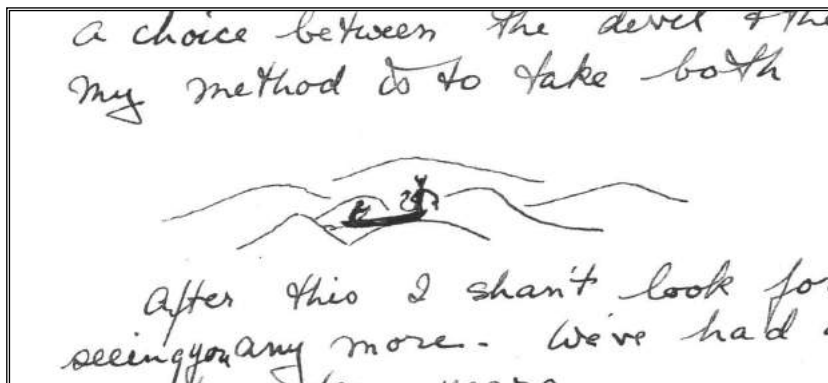 a choice between the devil & the
my method is to take both
After this I shan't look for
seeing you any more. We've had
years